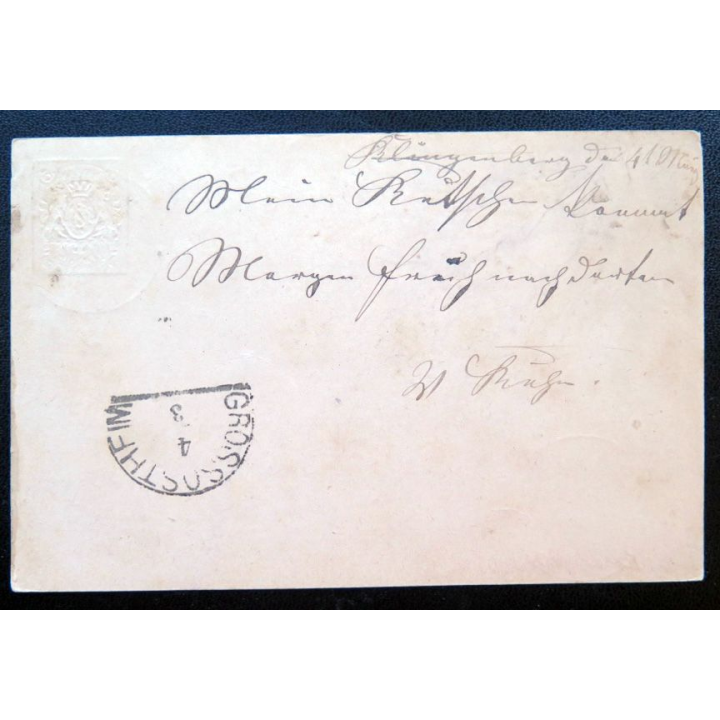 Klingenberg den 4/ März
Mein Kutscher kommt
Morgen früh nach dorten
W Kuhn.
GROSSOSTHEIM
4
3